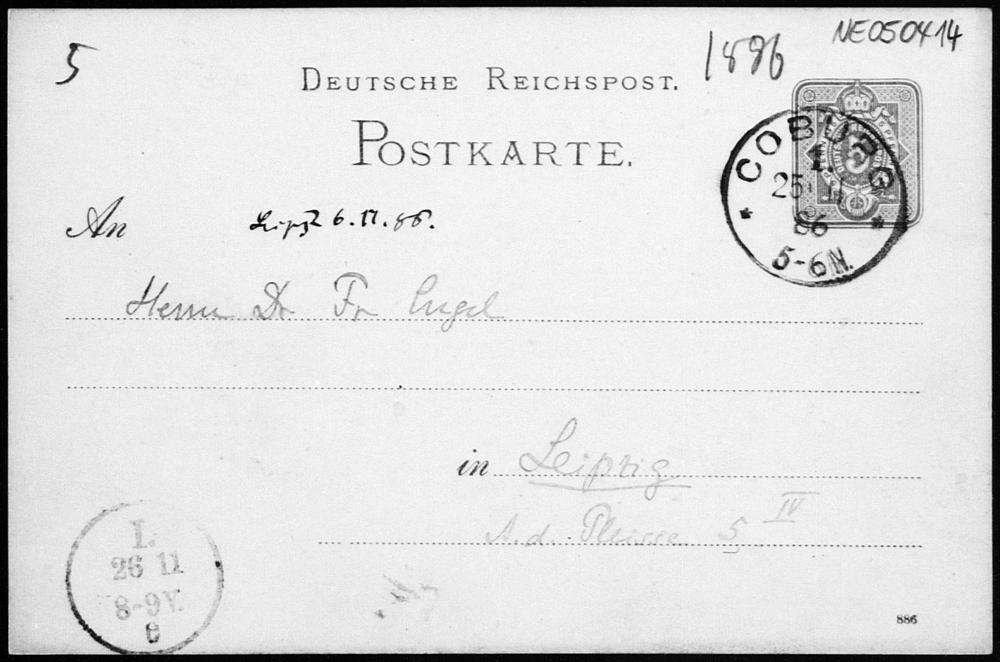 5
1886
NE050414
DEUTSCHE REICHSPOST.
POSTKARTE.
COBURG
1.
25 11
86
5-6N.
An
Leipz 6.11.86.
Herrn Dr Fr Engel
in Leipzig
A. d. Pleisse 5 IV
1.
26 11
8-9V.
886